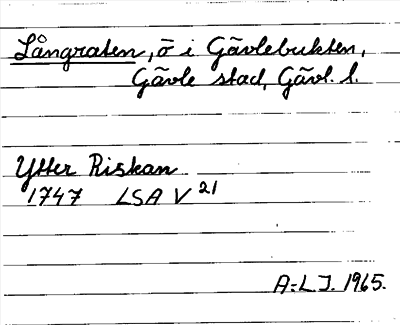 Långraten, ö i Gävlebukten,
Gävle stad, Gävl. l.
Ytter Riskan
1747 LSA V 21
A-L J. 1965.